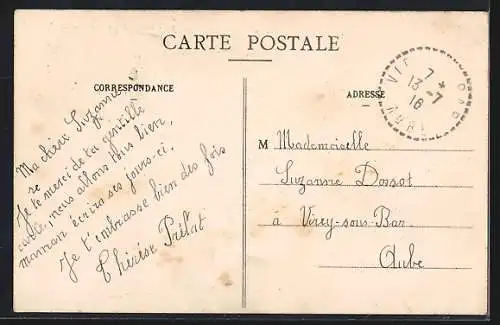 CARTE POSTALE
CORRESPONDANCE
Ma chère Suzanne
Je te merci de ta gentille
carte, nous allons tous bien,
maman écrira ses jours-ci.
Je t'embrasse bien des fois
Thérèse Prélat
ADRESSE
7 *
13 -7
16
M Mademoiselle
Suzanne Dossot
à Virey-sous-Bar
Aube